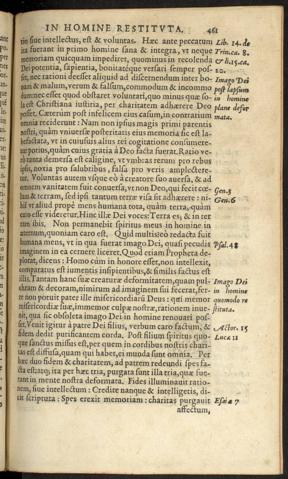 IN HOMINE RESTITVTA. 461
tio siue intellectus, est & voluntas. Hæc ante peccatum
ita fuerant in primo homine sana & integra, vt neque
memoriam quicquam impediret, quominus in recolenda
Dei potentia, sapientia, bonitatéque versari semper pos-
set, nec rationi deesset aliquid ad discernendum inter bo-
num & malum, verum & falsum, commodum & incommo
dum: nec esset quod obstaret voluntati, quo minus quæ so-
la est Christiana iustitia, per charitatem adhærere Deo
posset. Cæterum post infelicem eius casum, in contrarium
omnia reciderunt: Nam non ipsius magis primi parentis
nostri, quàm vniuersæ posteritatis eius memoria sic est la-
befactata, vt in cuiusuis alius rei cogitatione consumere-
tur potius, quàm cuius gratia à Deo facta fuerat. Ratio ve-
rò tanta demersa est caligine, vt vmbras rerum pro rebus
ipsis, noxia pro salubribus, falsa pro veris amplecteren-
tur. Voluntas autem vsque eò à creatore suo auersa, & ad
omnem vanitatem fuit conuersa, vt non Deo, qui fecit cœ-
lum & terram, sed ipsi tantum terræ visa sit adhærere: ni-
hil vt aliud propè mens humana tota, quàm terra, quàm
caro esse videretur. Hinc illæ Dei voces: Terra es, & in ter
ram ibis, Non permanebit spiritus meus in homine in
æternum, quoniam caro est. Quid multis? eò redacta fuit
humana mens, vt in qua fuerat imago Dei, quasi pecudis
imaginem in ea cernere liceret. Quod etiam Propheta de-
plorat, dicens: Homo cùm in honore esset, non intellexit,
comparatus est iumentis insipientibus, & similis factus est
illis. Tantam hanc suæ creaturæ deformitatem, quam pul-
chram & decoram, nimirum ad imaginem sui fecerat, fer-
re non potuit pater ille misericordiarū Deus: qui memor
misericordiæ suæ, immemor culpæ nostræ, rationem inue-
nit, qua sic obsoleta imago Dei in homine renouari pos-
set. Venit igitur à patre Dei filius, verbum caro factum, &
fidem dedit purificantem corda. Post filium spiritus quo-
que sanctus missus est, per quem in cordibus nostris chari-
tas est diffusa, quam qui habet, ei munda sunt omnia. Per
hæc duo fidem & charitatem, ad patrem redeundi spes fa-
cta est: atq; ita per hæc tria, purgata sunt illa tria, quæ fue-
rant in mente nostra deformata. Fides illuminauit ratio-
nem, siue intellectum: Credite nanque & intelligetis, di-
xit scriptura: Spes erexit memoriam: charitas purgauit
affectum,
Lib. 14. de
Trin. ca. 8.
& li. 15. ca.
20.
Imago Dei
post lapsum
in homine
planè defor
mata.
Gen. 3
Gen. 6
Psal. 48
Imago Dei
in homine
quomodo re
stituta.
Actor. 15
Luca 11
Esaiæ 7